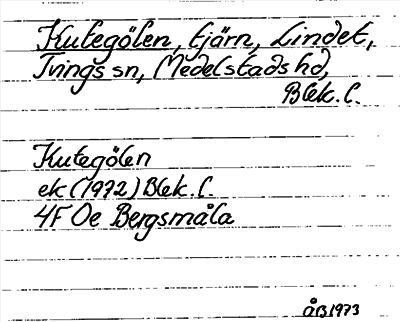 Kutegölen, tjärn, Lindet,
Tvings sn, Medelstads hd,
Blek. l.
Kutegölen
ek (1972) Blek. l.
4F 0e Bergsmåla
ÅB 1973